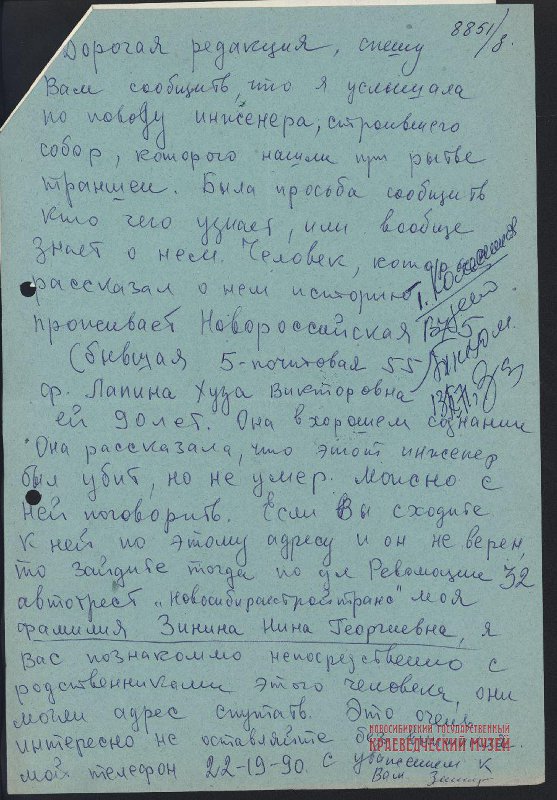 8851/8.
Дорогая редакция, спешу
Вам сообщить, что я услышала
по поводу инженера, строившего
собор, которого нашли при рытье
траншеи. Была просьба сообщить
кто чего узнает, или вообще
знает о нем. Человек, которая
рассказал о нем историю
проживает Новороссийская 55
(бывшая 5-почтовая 55
ф. Лапина Хуза Викторовна
ей 90 лет. Она в хорошем сознании
Она рассказала, что этот инженер
был убит, но не умер. Можно с
ней поговорить. Если Вы сходите
к ней по этому адресу и он не верен,
то зайдите тогда по ул Революции 32
автотрест "Новосибирскстройтранс" моя
фамилия Зинина Нина Георгиевна, я
Вас познакомлю непосредственно с
родственниками этого человека, они
могли адрес спутать. Это очень
интересно не оставляйте без
мой телефон 22-19-90. с уважением к
Вам Зинин
НОВОСИБИРСКИЙ ГОСУДАРСТВЕННЫЙ
КРАЕВЕДЧЕСКИЙ МУЗЕЙ